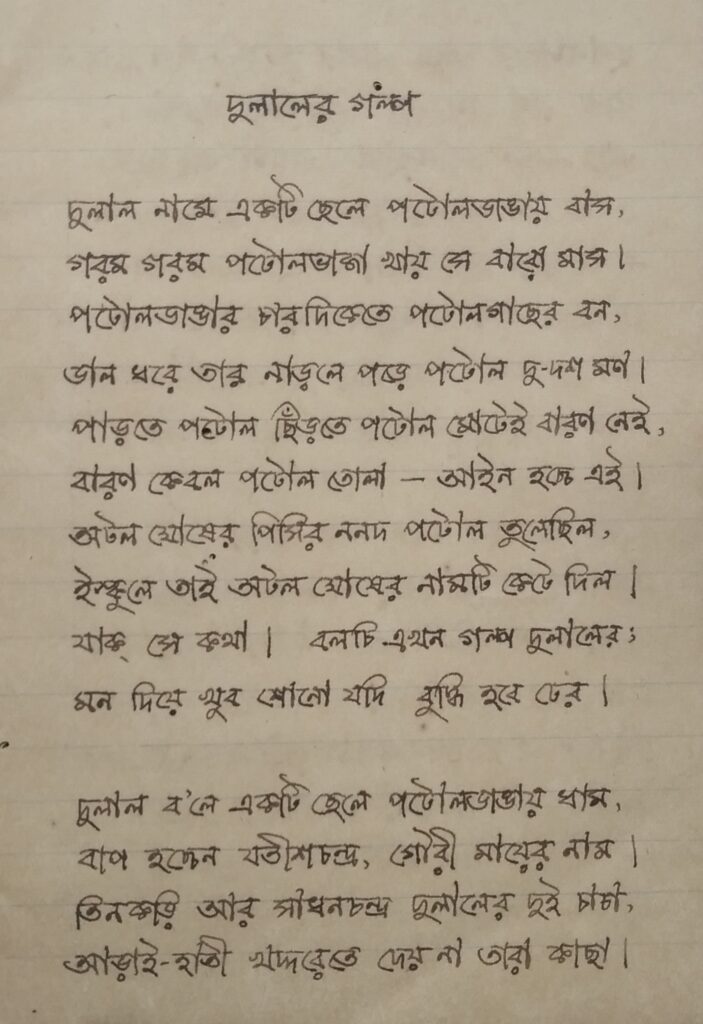 দুলালের গল্প
দুলাল নামে একটি ছেলে পটোলডাঙায় বাস,
গরম গরম পটোলভাজা খায় সে বারো মাস।
পটোলডাঙার চারদিকেতে পটোলগাছের বন,
ডাল ধরে তার নাড়লে পড়ে পটোল দু-দশ মণ।
পাড়তে পটোল ছিঁড়তে পটোল মোটেই বারণ নেই,
বারণ কেবল পটোল তোলা — আইন হচ্চে এই।
অটল ঘোষের পিসির ননদ পটোল তুলেছিল,
ইস্কুলে তাই অটল ঘোষের নামটি কেটে দিল।
যাক্ সে কথা। বলচি এখন গল্প দুলালের;
মন দিয়ে খুব শোনো যদি বুদ্ধি হবে ঢের।
দুলাল ব'লে একটি ছেলে পটোলডাঙায় ধাম,
বাপ হচ্চেন যতীশচন্দ্র, গৌরী মায়ের নাম।
তিনকড়ি আর সাধনচন্দ্র দুলালের দুই চাচা,
আড়াই-হাতী খদ্দরেতে দেয় না তারা কাছা।